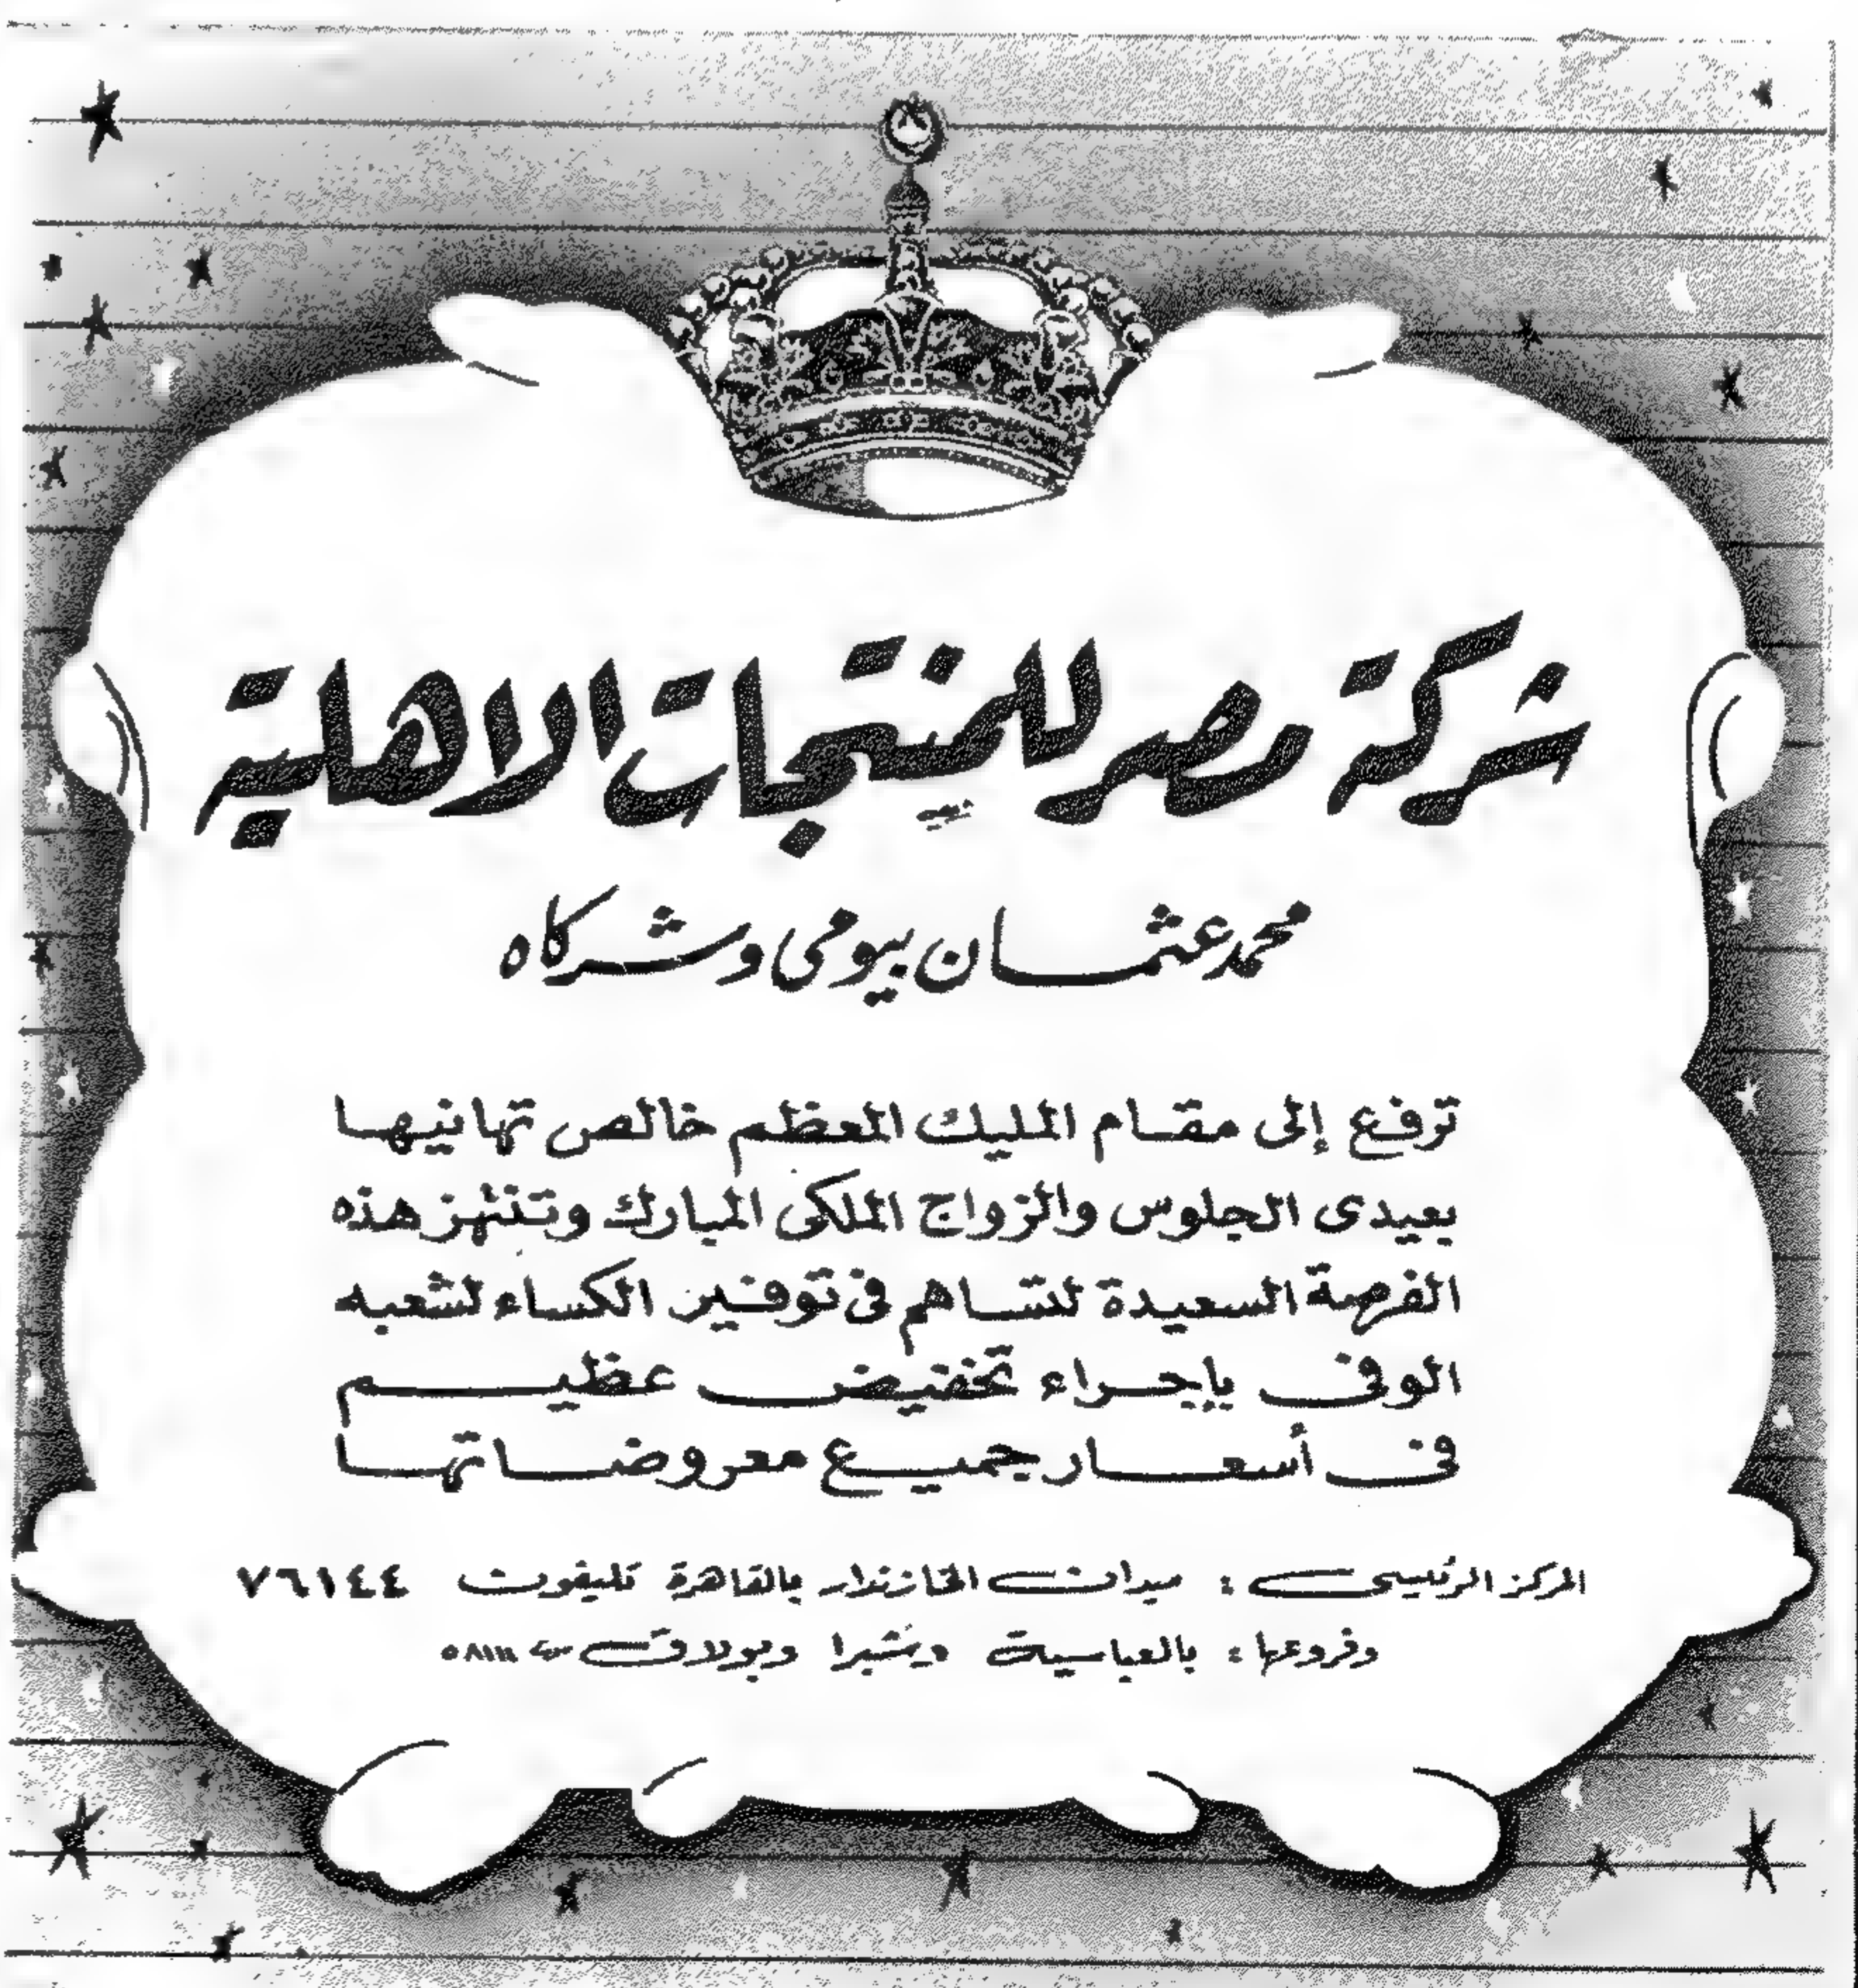 شركة مصر للمنتجات الاهلية
محمد عثمان بيومى وشركاه
ترفع إلى مقام المليك المعظم خالص تهانيها
بعيدى الجلوس والزواج الملكى المبارك وتنتهز هذه
الفرصة السعيدة لتساهم فى توفير الكساء لشعبه
الوفى بإجراء تخفيض عظيم
فى أسعار جميع معروضاتها
المركز الرئيسى : ميدان الخازندار بالقاهرة تليفون ٧٦١٤٤
وفروعها : بالعباسية وبشبرا وبولاق